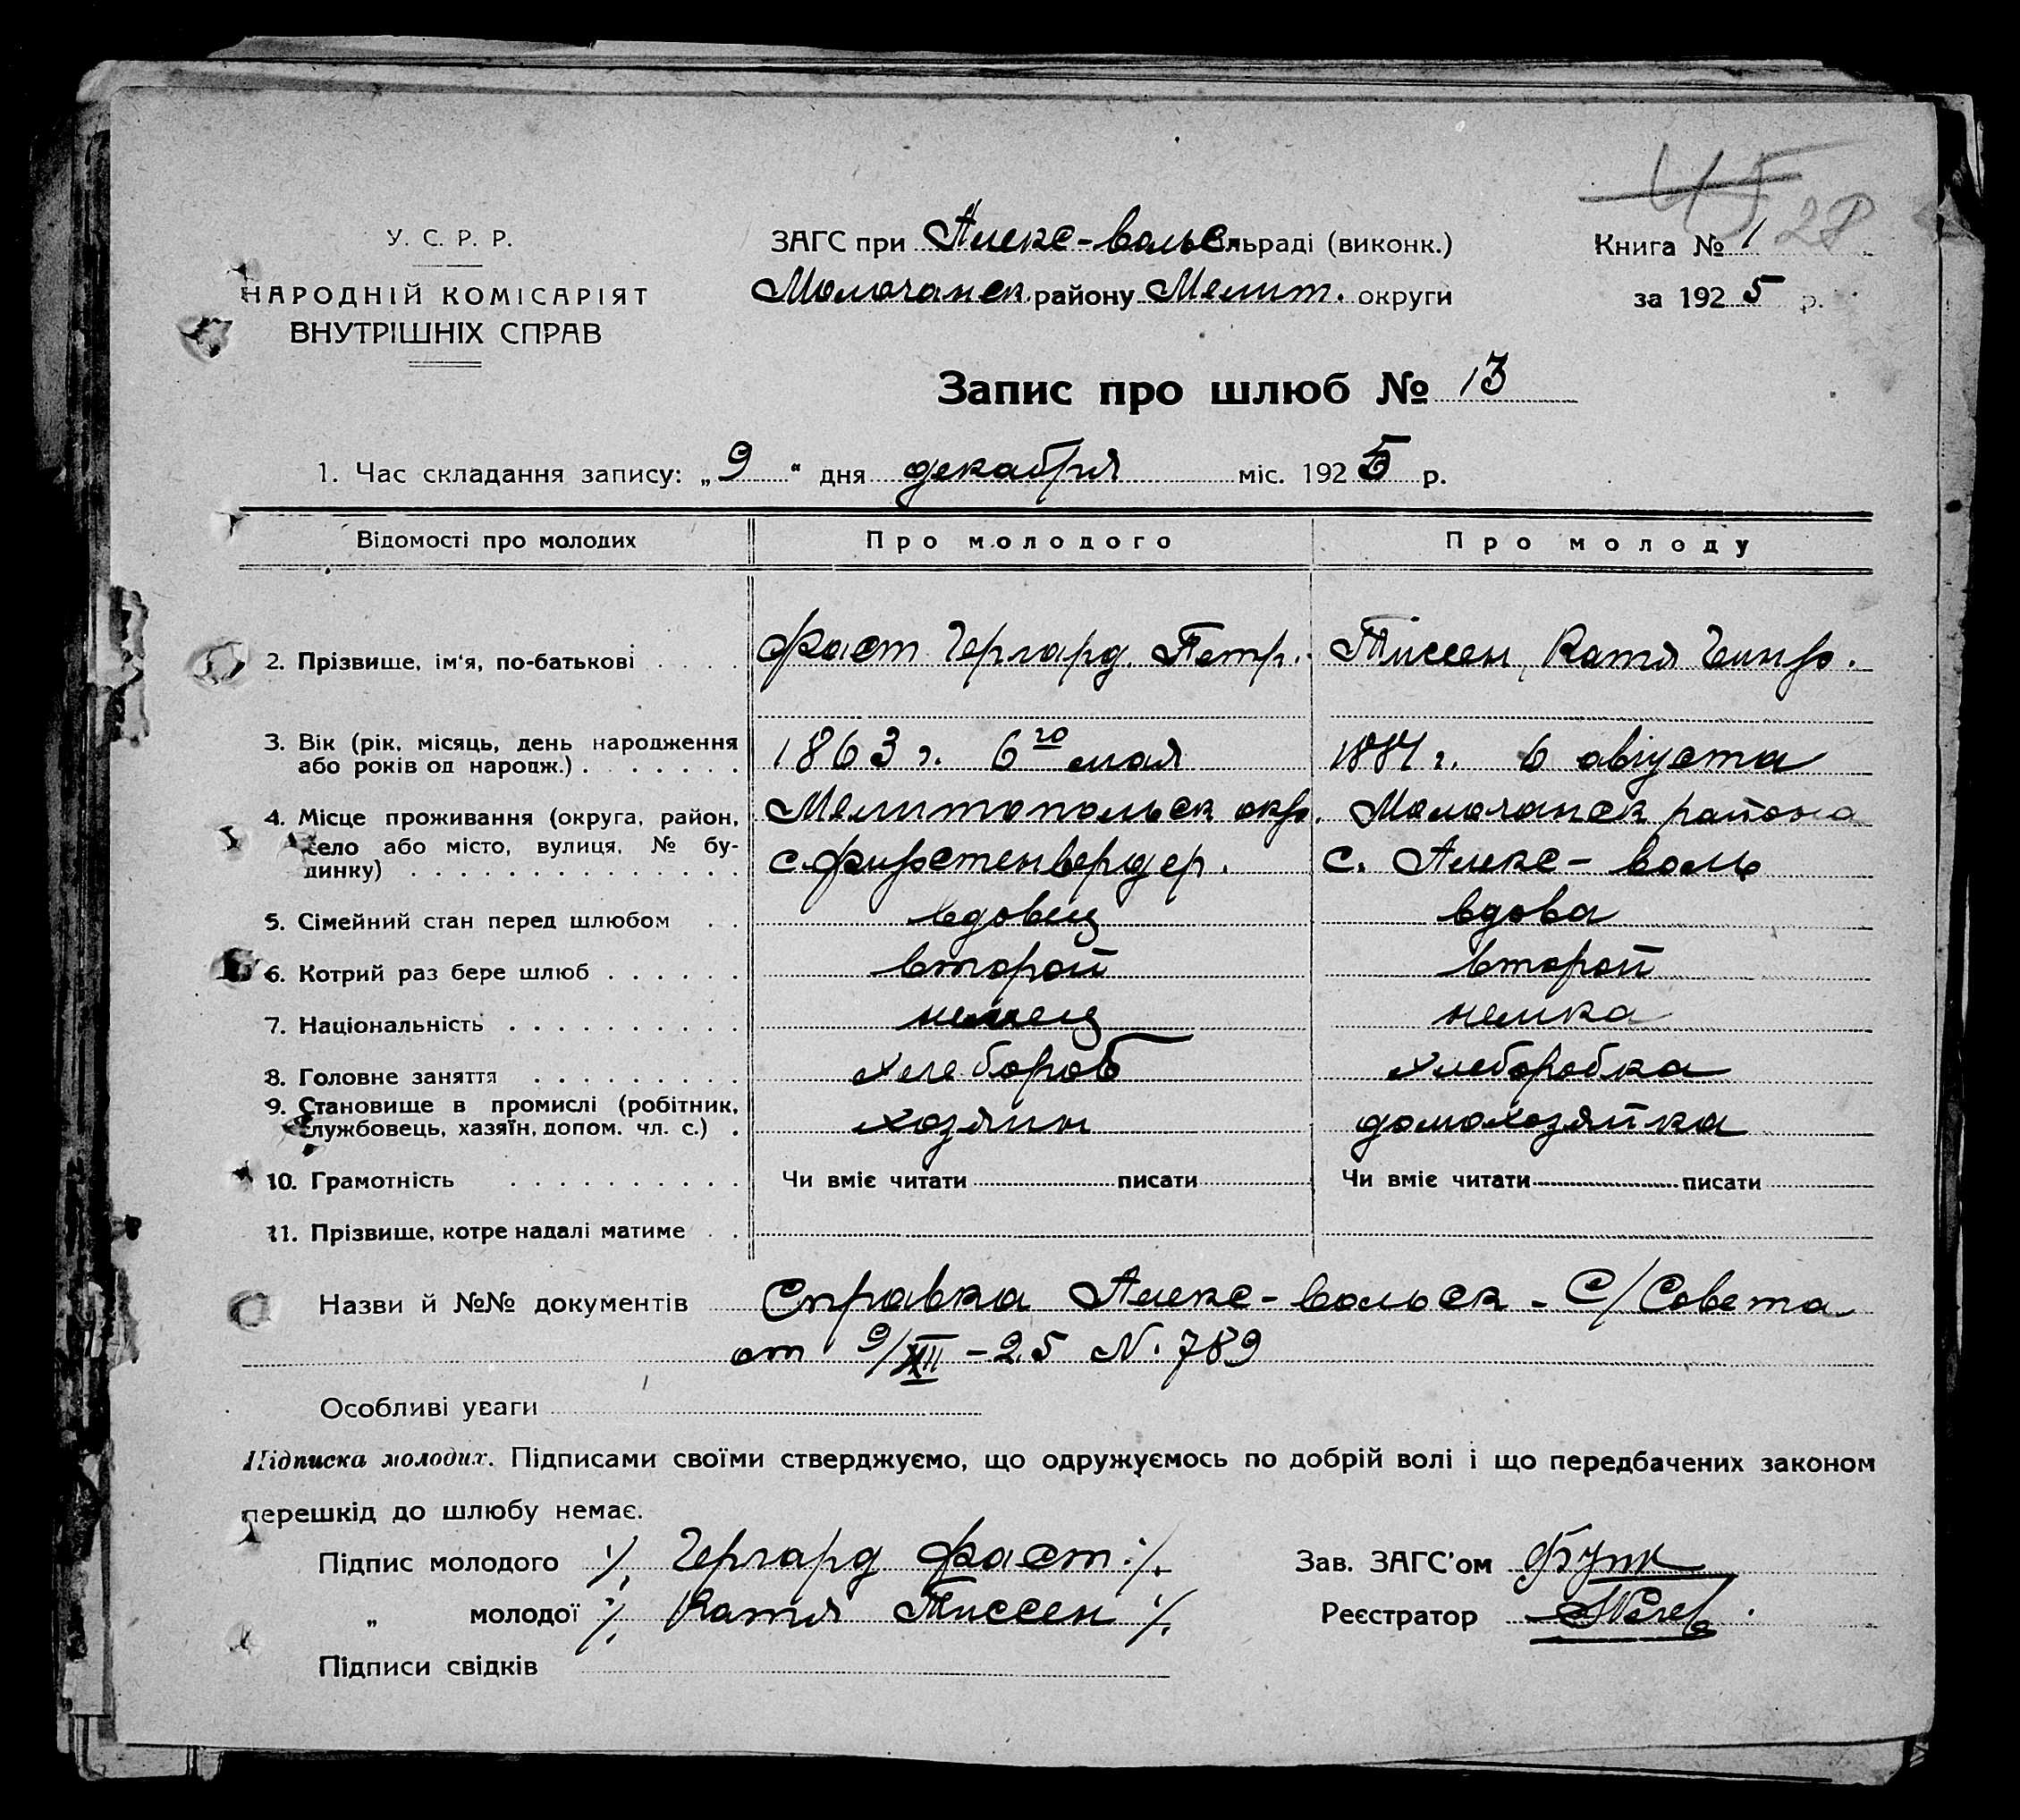 45 28
У. С. Р. Р.
НАРОДНІЙ КОМІСАРІЯТ
ВНУТРІШНІХ СПРАВ
ЗАГС при Алекс-вольс льраді (виконк.)
Молочанск району Мелит. округи
Книга № 1
за 1925 р.
Запис про шлюб № 13
1. Час складання запису: „9“ дня декабря міс. 1925 р.
Відомості про молодих Про молодого Про молоду
2. Прізвище, ім'я, по-батькові . . . . Фаст Гергард. Петр. Тиссен, Катя Генр.
3. Вік (рік, місяць, день народження 1863 г. 6го мая 1884 г. 6 августа
або років од народж.) . . . . . . .
4. Місце проживання (округа, район, Мелитопольск окр. Молочанск района
село або місто, вулиця, № бу- с. Фирстенвердер. с. Алекс-воль
динку) . . . . . . . . . . . . . .
5. Сімейний стан перед шлюбом . . вдовец вдова
6. Котрий раз бере шлюб . . . . . . второй второй
7. Національність . . . . . . . . . . немец немка
8. Головне заняття . . . . . . . . . хлебороб хлеборобка
9. Становище в промислі (робітник, хозяин домохозяйка
службовець, хазяїн, допом. чл. с.) .
10. Грамотність . . . . . . . . . . Чи вміє читати писати Чи вміє читати писати
11. Прізвище, котре надалі матиме . .
Назви й №№ документів Справка Алекс-вольск-С/Совета
от 9/XII-25 N. 789
Особливі уваги
Підписка молодих. Підписами своїми стверджуємо, що одружуємось по добрій волі і що передбачених законом
перешкід до шлюбу немає.
Підпис молодого ./. Гергард Фаст ./. Зав. ЗАГС'ом Функ
„ молодої ./. Катя Тиссен ./. Реєстратор
Підписи свідків